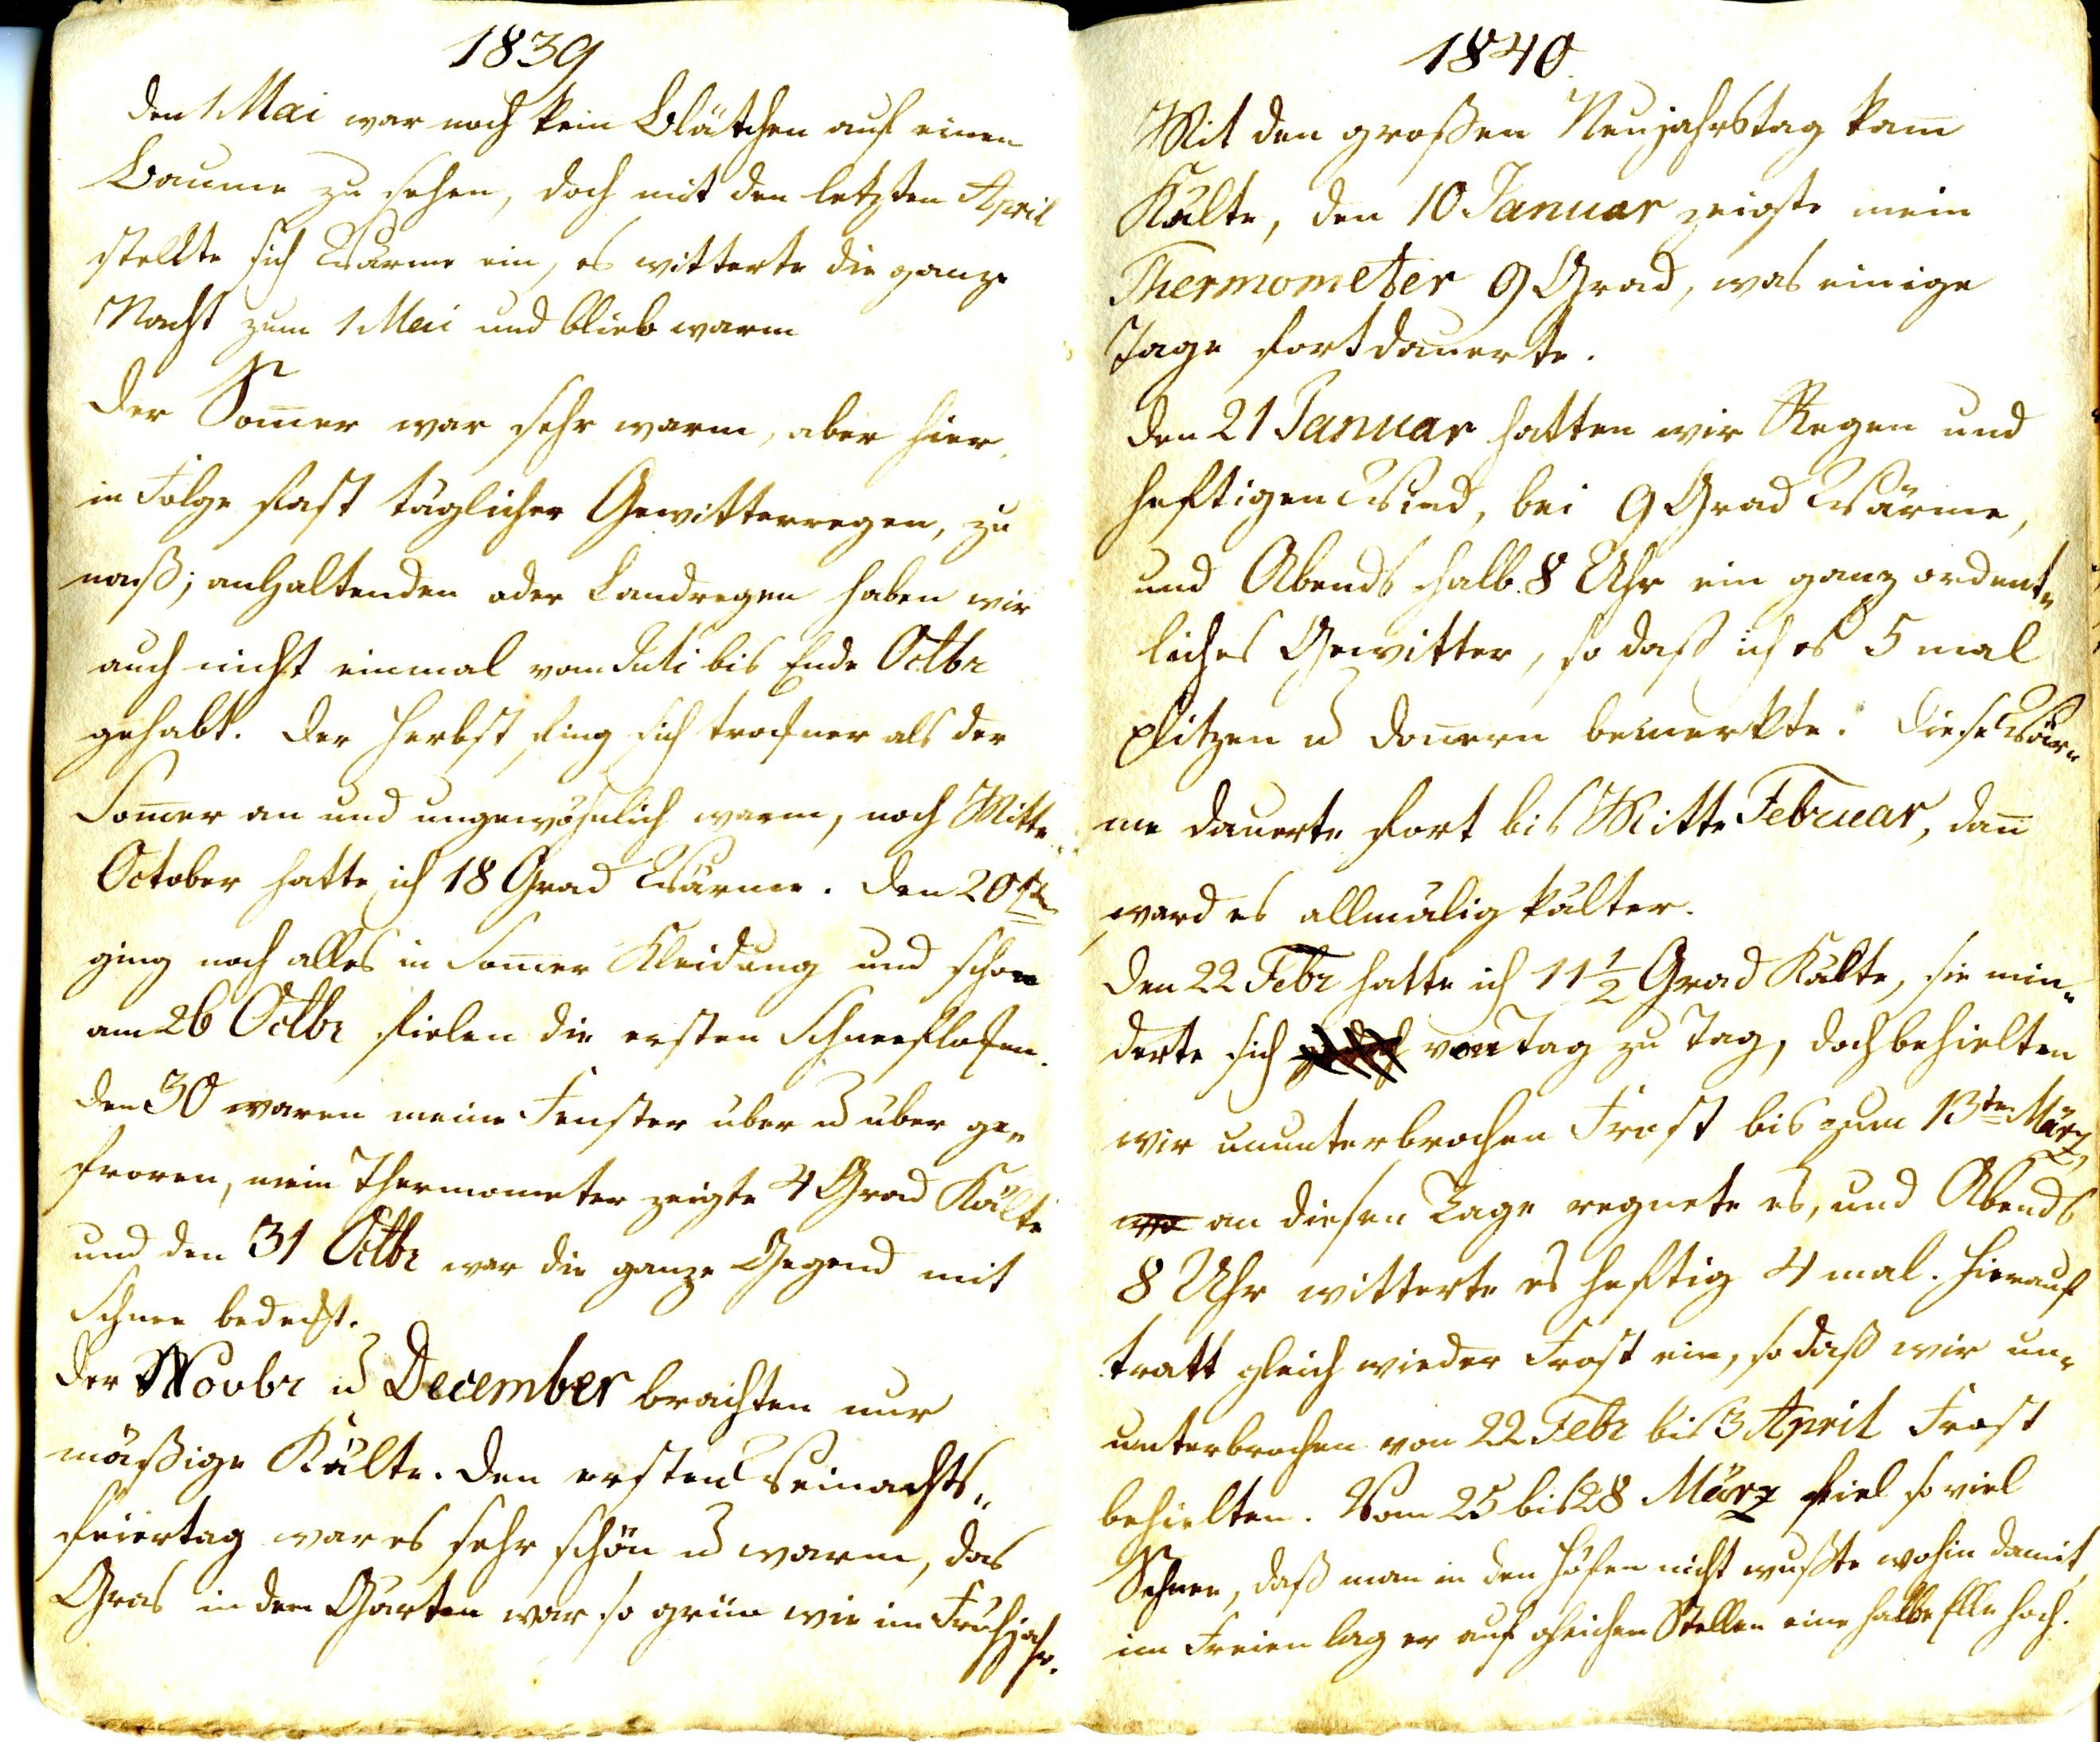 1839
den 1 Mai war noch kein Blätchen auf einen
Baume zu sehen, doch mit den letzten April
stellte sich Wärme ein, es witterte die ganze
Nacht zum 1 Mai und blieb warm
Der Som̄er war sehr warm, aber hier,
in Folge fast täglicher Gewitterregen, zu
naß; anhaltenden oder Landregen haben wir
auch nicht einmal vom Juli bis Ende Octbr
gehabt. Der Herbst fing sich trockner als der
Som̄er an und ungewöhnlich warm, noch Mitte
October hatte ich 18 Grad Wärme. Den 20ten
ging noch alles in Som̄er Kleidung und schon
am 26 Octbr fielen die ersten Schneeflocken.
den 30 waren meine Fenster über u über ge„
froren, mein Thermometer zeigte 4 Grad Kälte
und den 31 Octbr war die ganze Gegend mit
Schnee bedeckt.
Der Novbr u December brachten nur
mäßige Kälte. Den ersten Weinachts„
feiertag war es sehr schön u warm, das
Gras in den Gärten war so grün wie im Frühjahr.
1840
Mit den großen Neujahrstag kam̄
Kälte, den 10 Januar zeigte mein
Thermometer 9 Grad, was einige
Tage fortdauerte.
Den 21 Januar hatten wir Regen und
heftigen Wind, bei 9 Grad Wärme,
und Abends halb 8 Uhr ein ganz ordent„
liches Gewitter, so daß ich es 5 mal
blitzen u don̄ern bemerkte. Diese Wär„
me dauerte fort bis Mitte Februar, dan̄
ward es allmälig kälter.
Den 22 Febr hatte ich 11 1/2 Grad Kälte, sie min„
derte sich von Tag zu Tag, doch behielten
wir ununterbrochen Frost bis zum 13ten März,
an diesen Tage regnete es, und Abends
8 Uhr witterte es heftig 4 mal. Hierauf
tratt gleich wieder Frost ein, so daß wir un„
unterbrochen von 22 Febr bis 3 April Frost
behielten. Vom 25 bis 28 März fiel so viel
Schnee, daß man in den Höfen nicht wußte wohin damit,
im Freien lag er auf gleichen Stellen eine halbe Elle hoch.